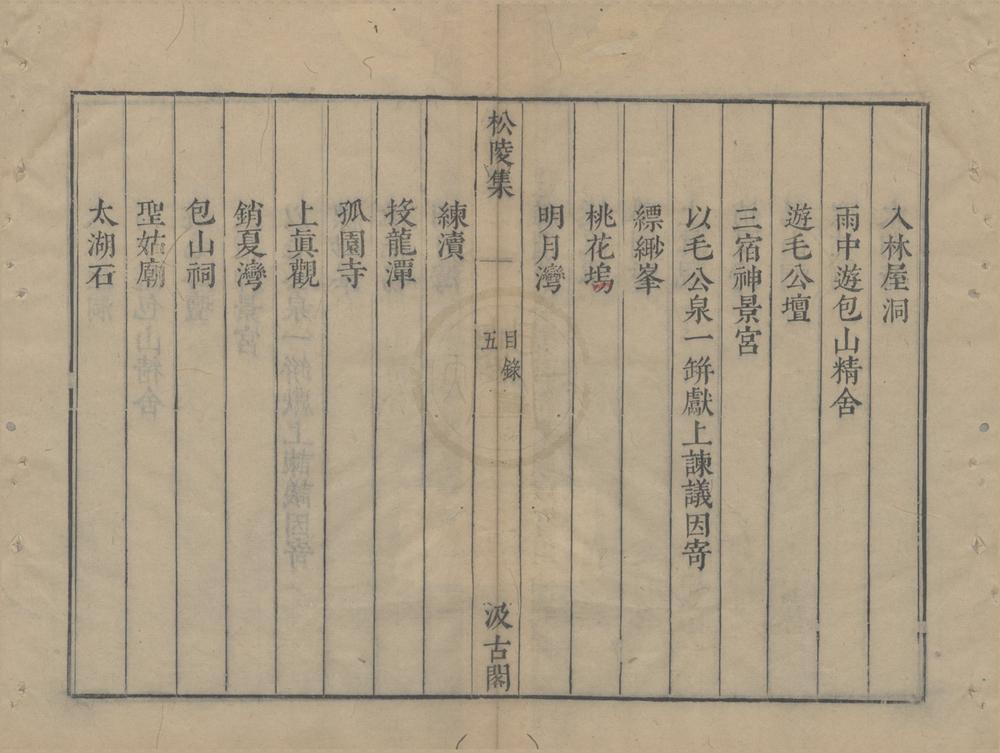 入林屋洞
雨中遊包山精舍
遊毛公壇
三宿神景宮
以毛公泉一缾獻上諫議因寄
縹緲峯
桃花塢
明月灣
松陵集
目錄
五
汲古閣
練瀆
投龍潭
孤園寺
上眞觀
銷夏灣
包山祠
聖姑廟
太湖石